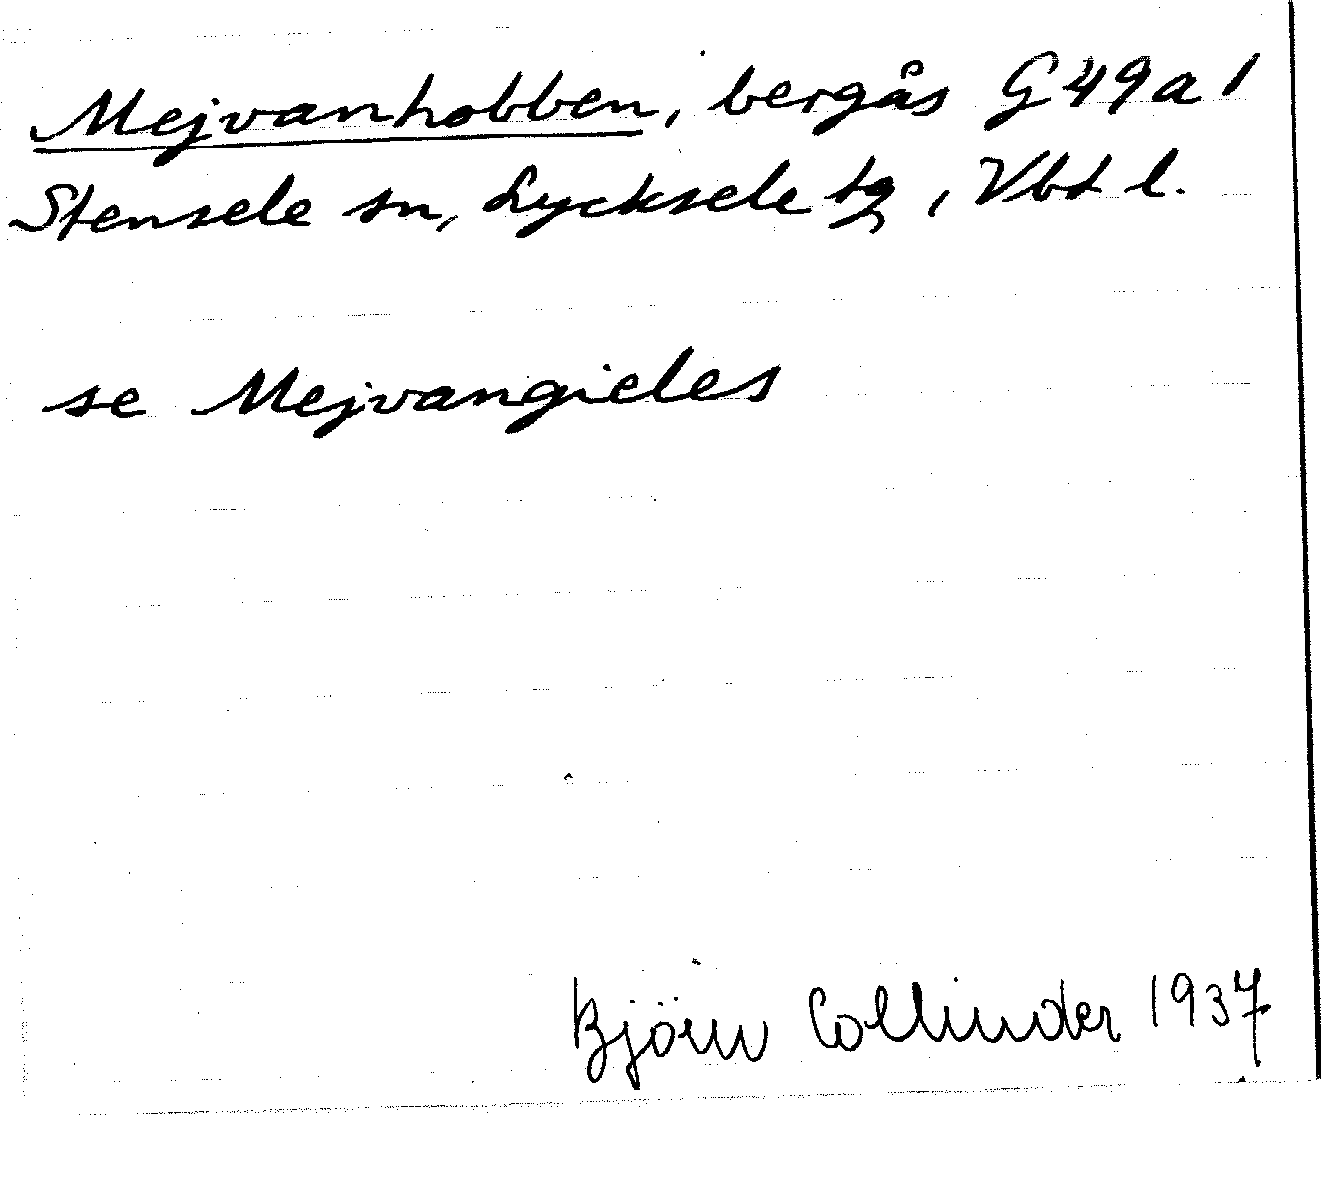 Mejvanhobben, bergås G 49 a 1
Stensele sn, Lycksele tg, Vbt l.
se Mejvangieles
Björn Collinder 1937